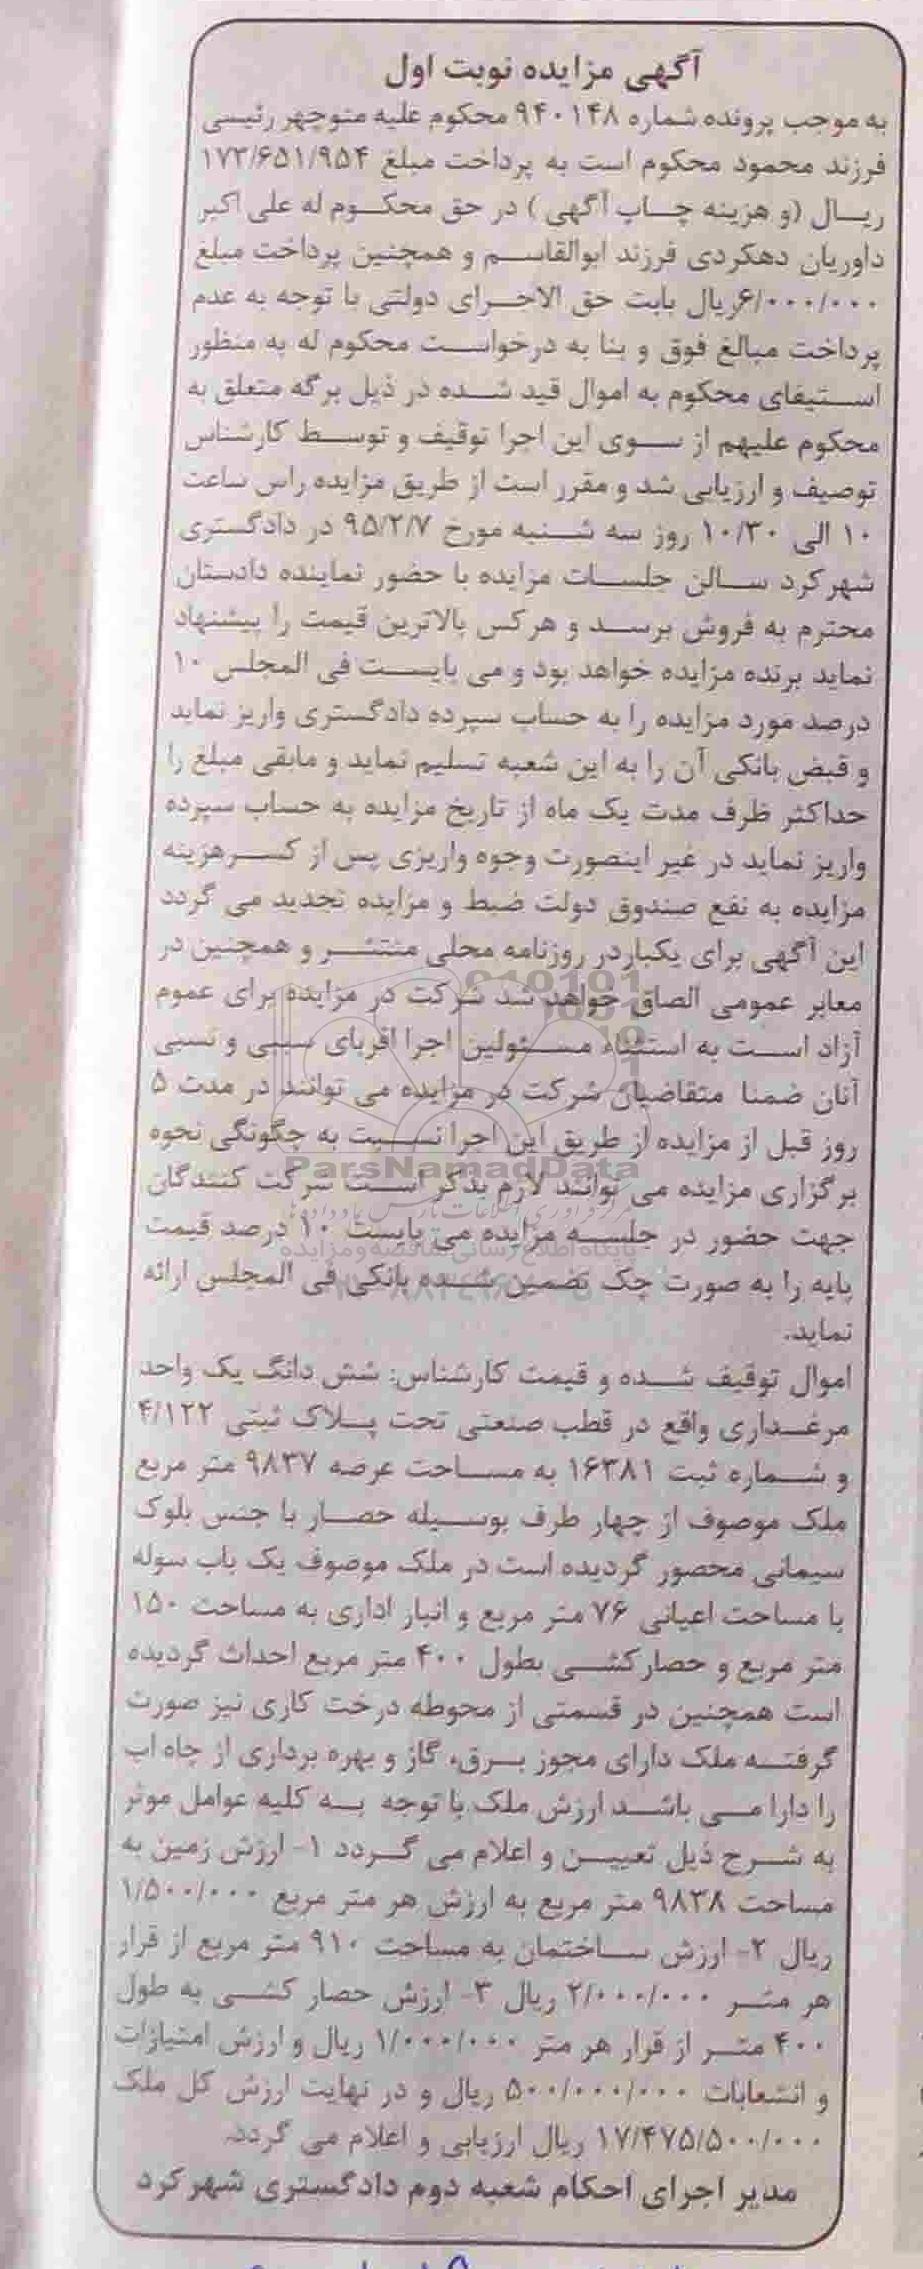 آگهی مزایده نوبت اول
به موجب پرونده شماره ۹۴۰۱۴۸ محکوم علیه منوچهر رئیسی
فرزند محمود محکوم است به پرداخت مبلغ ۱۷۳/۶۵۱/۹۵۴
ریال (و هزینه چاپ آگهی ) در حق محکوم له علی اکبر
داوریان دهکردی فرزند ابوالقاسم و همچنین پرداخت مبلغ
۶/۰۰۰/۰۰۰ریال بابت حق الاجرای دولتی با توجه به عدم
پرداخت مبالغ فوق و بنا به درخواست محکوم له به منظور
استیفای محکوم به اموال قید شده در ذیل برگه متعلق به
محکوم علیهم از سوی این اجرا توقیف و توسط کارشناس
توصیف و ارزیابی شد و مقرر است از طریق مزایده راس ساعت
۱۰ الی ۱۰/۳۰ روز سه شنبه مورخ ۹۵/۲/۷ در دادگستری
شهرکرد سالن جلسات مزایده با حضور نماینده دادستان
محترم به فروش برسد و هرکس بالاترین قیمت را پیشنهاد
نماید برنده مزایده خواهد بود و می بایست فی المجلس ۱۰
درصد مورد مزایده را به حساب سپرده دادگستری واریز نماید
و قبض بانکی آن را به این شعبه تسلیم نماید و مابقی مبلغ را
حداکثر ظرف مدت یک ماه از تاریخ مزایده به حساب سپرده
واریز نماید در غیر اینصورت وجوه واریزی پس از کسرهزینه
مزایده به نفع صندوق دولت ضبط و مزایده تجدید می گردد
این آگهی برای یکباردر روزنامه محلی منتشر و همچنین در
معابر عمومی الصاق خواهد شد شرکت در مزایده برای عموم
آزاد است به استثناء مسئولین اجرا اقربای سببی و نسبی
آنان ضمنا متقاضیان شرکت در مزایده می توانند در مدت ۵
روز قبل از مزایده از طریق این اجرا نسبت به چگونگی نحوه
ParsNamadData
برگزاری مزایده می توانند لازم بذکر است شرکت کنندگان
جهت حضور در جلسه مزایده می بایست ۱۰ درصد قیمت
پایگاه اطلاع رسانی مناقصه و مزایده
پایه را به صورت چک تضمین شده بانکی فی المجلس ارائه
نماید.
اموال توقیف شده و قیمت کارشناس: شش دانگ یک واحد
مرغداری واقع در قطب صنعتی تحت پلاک ثبتی ۴/۱۲۲
و شماره ثبت ۱۶۳۸۱ به مساحت عرصه ۹۸۳۷ متر مربع
ملک موصوف از چهار طرف بوسیله حصار با جنس بلوک
سیمانی محصور گردیده است در ملک موصوف یک باب سوله
با مساحت اعیانی ۷۶ متر مربع و انبار اداری به مساحت ۱۵۰
متر مربع و حصارکشی بطول ۴۰۰ متر مربع احداث گردیده
است همچنین در قسمتی از محوطه درخت کاری نیز صورت
گرفته ملک دارای مجوز برق، گاز و بهره برداری از چاه اب
را دارا می باشد ارزش ملک با توجه به کلیه عوامل موثر
به شرح ذیل تعیین و اعلام می گردد ۱- ارزش زمین به
مساحت ۹۸۳۸ متر مربع به ارزش هر متر مربع ۱/۵۰۰/۰۰۰
ریال ۲- ارزش ساختمان به مساحت ۹۱۰ متر مربع از قرار
هر متر ۲/۰۰۰/۰۰۰ ریال ۳- ارزش حصار کشی به طول
۴۰۰ متر از قرار هر متر ۱/۰۰۰/۰۰۰ ریال و ارزش امتیازات
و انشعابات ۵۰۰/۰۰۰/۰۰۰ ریال و در نهایت ارزش کل ملک
۱۷/۴۷۵/۵۰۰/۰۰۰ ریال ارزیابی و اعلام می گردد.
مدیر اجرای احکام شعبه دوم دادگستری شهرکرد